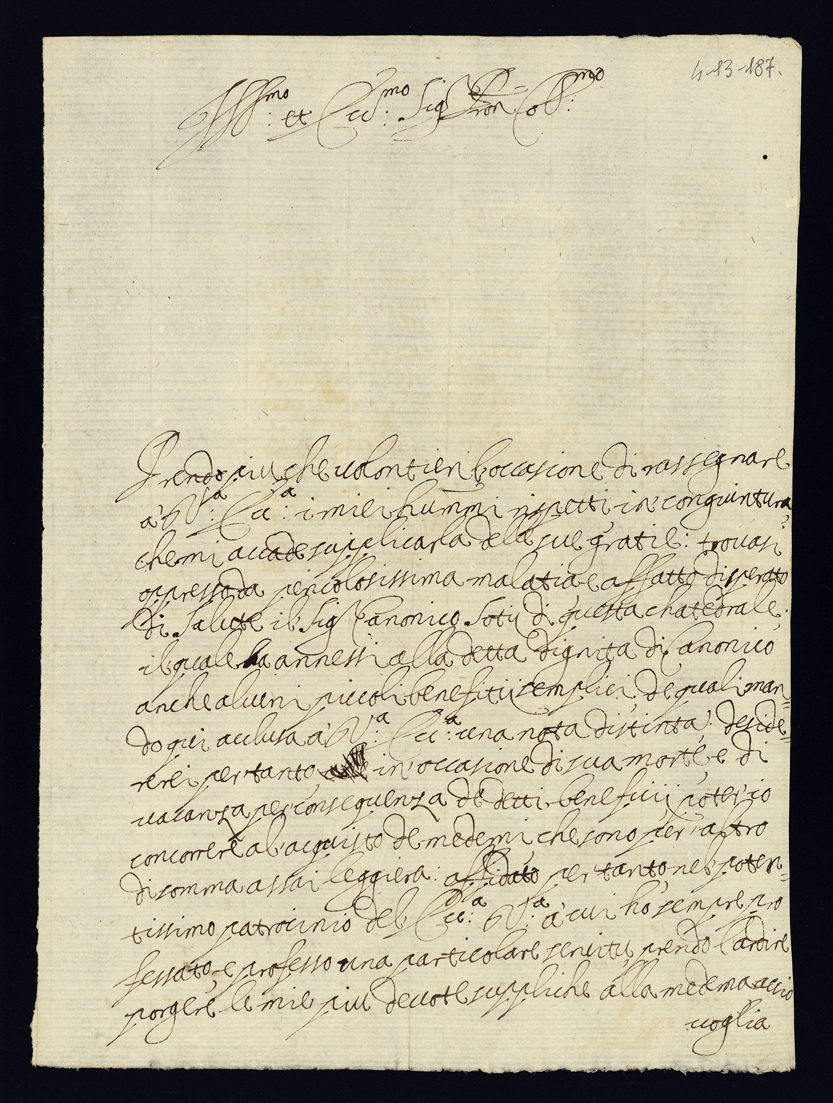 4-13-187.
Ill:mo et Ecc:mo Sig:r Pron Coll:mo
Prendo piu che volontieri l'occasione di rassegnare
à V:a Ecc:a i miei humm:i rispetti in congiuntura
che mi accade supplicarla delle sue gratie: trovasi
oppresso da pericolosissima malatia e affatto disperato
di salute il Sig:r Canonico Sotij di questa chatedrale.
il quale ha annessi alla detta dignita di Canonico
anche alcuni piccoli benefitij semplici, de quali man=
do qui acclusa à V:a Ecc:a una nota distinta: deside=
rerei per tanto in occasione di sua morte e di
vacanza per conseguenza de detti beneficij poter io
concorrere al acquisto de medemi che sono per altro
di somma assai leggiera: affidato per tanto nel poten=
tissimo patrocinio del Ecc:a V:a à cui hò sempre pro
fessato e professo una particolare servitù prendo l'ardire
porgere le mie piu devote suppliche alla medema accio
voglia